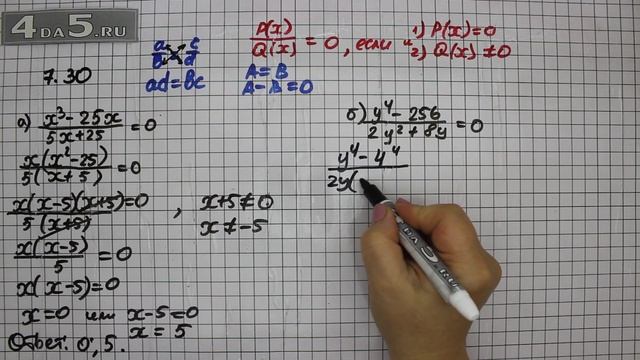 4DA5.RU
7.30
a/b = c/d
ad = bc
P(x)/Q(x) = 0, если 1) P(x)=0
и 2) Q(x) ≠ 0
A = B
A - B = 0
а) (x³ - 25x)/(5x + 25) = 0
x(x² - 25)/5(x + 5) = 0
x(x - 5)(x + 5)/5(x + 5) = 0, x + 5 ≠ 0
x ≠ -5
x(x - 5)/5 = 0
x(x - 5) = 0
x = 0 или x - 5 = 0
x = 5
Ответ: 0; 5.
б) (y⁴ - 256)/(2y² + 8y) = 0
(y⁴ - 4⁴)/2y(
4DA5.RU